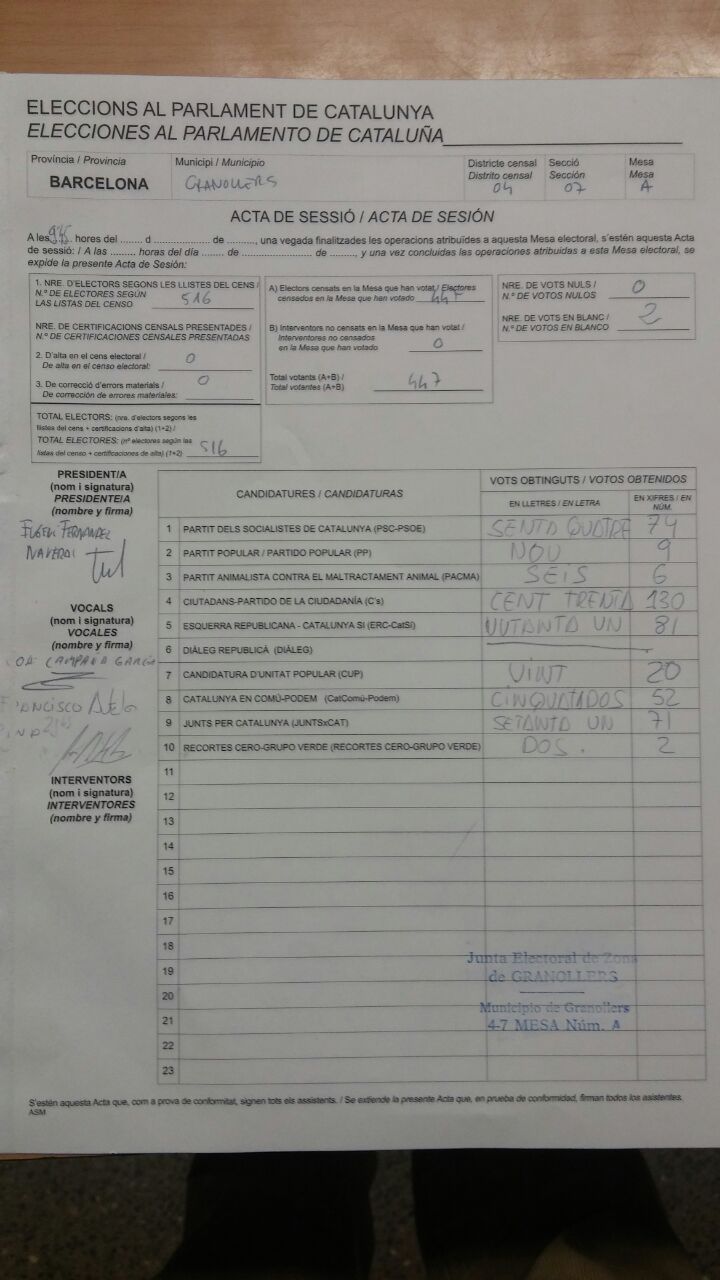 ELECCIONS AL PARLAMENT DE CATALUNYA
ELECCIONES AL PARLAMENTO DE CATALUÑA
Província / Provincia
BARCELONA
Municipi / Municipio
GRANOLLERS
Districte censal
Distrito censal
04
Secció
Sección
07
Mesa
Mesa
A
ACTA DE SESSIÓ / ACTA DE SESIÓN
A les hores del ........ d ........................ de .........., una vegada finalitzades les operacions atribuïdes a aquesta Mesa electoral, s'estén aquesta Acta
de sessió: / A las ......... horas del día ....... de ........................ de ........, y una vez concluidas las operaciones atribuidas a esta Mesa electoral, se
expide la presente Acta de Sesión:
1. NRE. D'ELECTORS SEGONS LES LLISTES DEL CENS /
N.º DE ELECTORES SEGÚN
LAS LISTAS DEL CENSO 516
NRE. DE CERTIFICACIONS CENSALS PRESENTADES /
N.º DE CERTIFICACIONES CENSALES PRESENTADAS
2. D'alta en el cens electoral /
De alta en el censo electoral: 0
3. De correcció d'errors materials /
De corrección de errores materiales: 0
TOTAL ELECTORS: (nre. d'electors segons les
llistes del cens + certificacions d'alta) (1+2) /
TOTAL ELECTORES: (nº electores según las
listas del censo + certificaciones de alta) (1+2) 516
A) Electors censats en la Mesa que han votat / Electores
censados en la Mesa que han votado 447
B) Interventors no censats en la Mesa que han votat /
Interventores no censados
en la Mesa que han votado 0
Total votants (A+B) /
Total votantes (A+B) 447
NRE. DE VOTS NULS /
N.º DE VOTOS NULOS 0
NRE. DE VOTS EN BLANC /
N.º DE VOTOS EN BLANCO 2
PRESIDENT/A
(nom i signatura)
PRESIDENTE/A
(nombre y firma)
FERNANDEZ
VOCALS
(nom i signatura)
VOCALES
(nombre y firma)
CAMPAÑA GARCIA
INTERVENTORS
(nom i signatura)
INTERVENTORES
(nombre y firma)
CANDIDATURES / CANDIDATURAS
VOTS OBTINGUTS / VOTOS OBTENIDOS
EN LLETRES / EN LETRA
EN XIFRES / EN NÚM.
1 PARTIT DELS SOCIALISTES DE CATALUNYA (PSC-PSOE) SENTA QUATRE 74
2 PARTIT POPULAR / PARTIDO POPULAR (PP) NOU 9
3 PARTIT ANIMALISTA CONTRA EL MALTRACTAMENT ANIMAL (PACMA) SEIS 6
4 CIUTADANS-PARTIDO DE LA CIUDADANÍA (C's) CENT TRENTA 130
5 ESQUERRA REPUBLICANA - CATALUNYA SÍ (ERC-CatSí) VUTANTA UN 81
6 DIÀLEG REPUBLICÀ (DIÀLEG)
7 CANDIDATURA D'UNITAT POPULAR (CUP) VINT 20
8 CATALUNYA EN COMÚ-PODEM (CatComú-Podem) CINQUATADOS 52
9 JUNTS PER CATALUNYA (JUNTSxCAT) SETANTA UN 71
10 RECORTES CERO-GRUPO VERDE (RECORTES CERO-GRUPO VERDE) DOS. 2
11
12
13
14
15
16
17
18
19
20
21
22
23
Junta Electoral de Zona
de GRANOLLERS
Municipio de Granollers
4-7 MESA Núm. A
S'estén aquesta Acta que, com a prova de conformitat, signen tots els assistents. / Se extiende la presente Acta que, en prueba de conformidad, firman todos los asistentes.
ASM